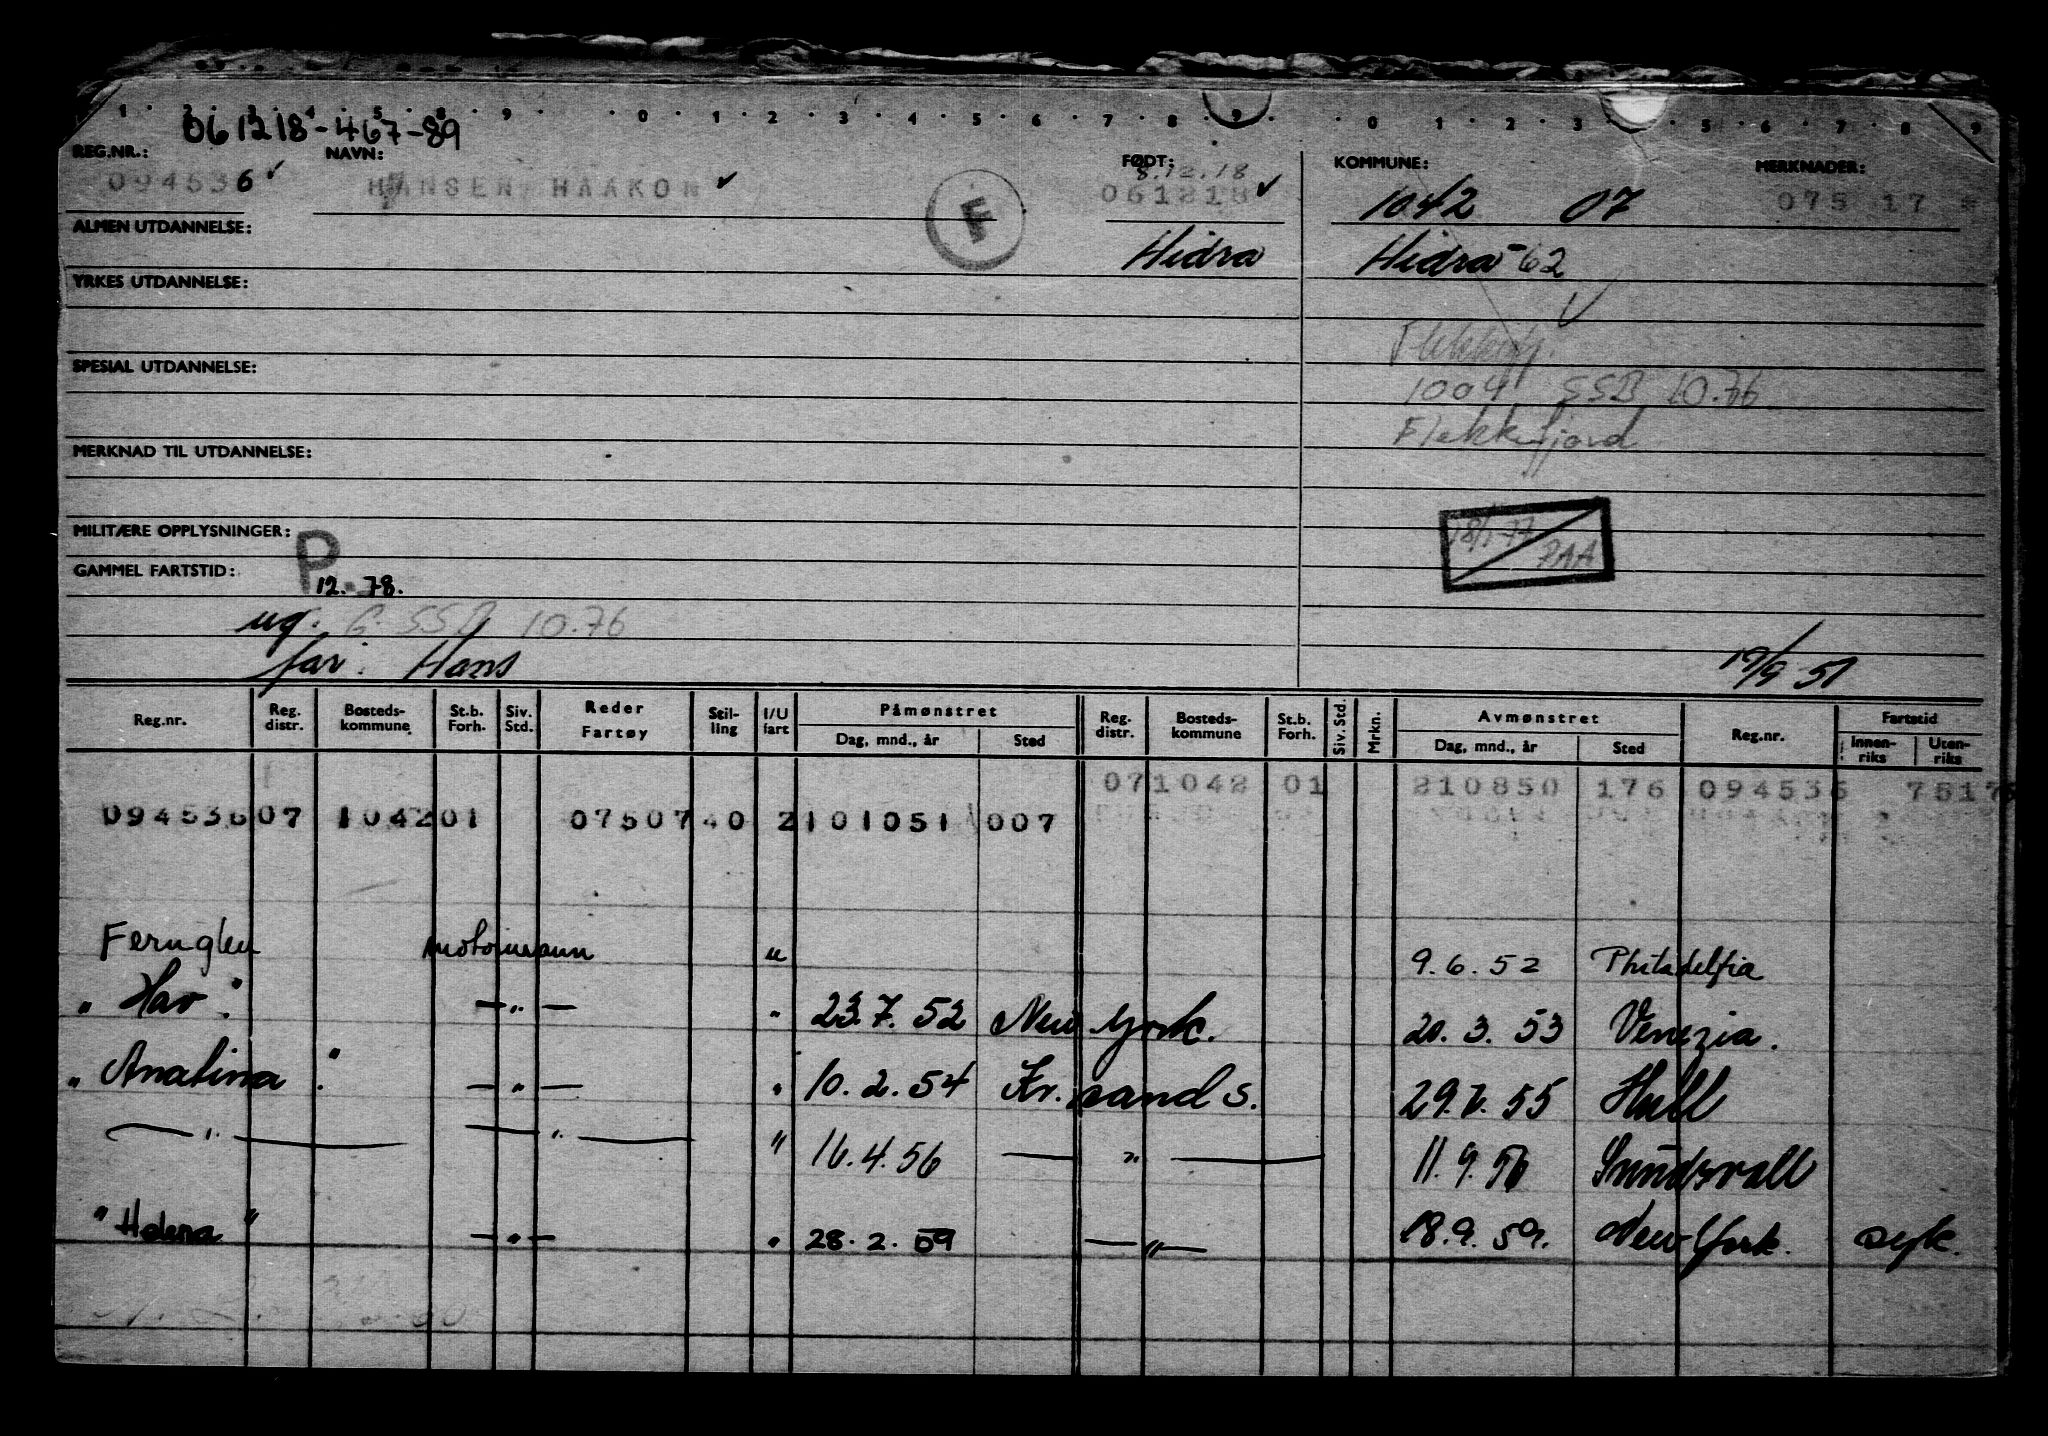 1 2 3 4 5 8 9 0 1 2 3 4 5 6 7 8 9 0 1 2 3 5 6 7 8 9
061218-467-89
REG.NR.: NAVN: FØDT: KOMMUNE: MERKNADER:
8.12.18
094536 ✓ HANSEN HAAKON ✓ F 061218 ✓ 1042 07 075 17
ALMEN UTDANNELSE: Hidra Hidra -62
YRKES UTDANNELSE:
SPESIAL UTDANNELSE:
1004 SSB 10.76
Flekkefjord
MERKNAD TIL UTDANNELSE:
MILITÆRE OPPLYSNINGER: P 18/1-77
PAA
GAMMEL FARTSTID: 12.-78.
ug. G. SSB 10.76
far: Hans 19/9-51
Reg.nr. Reg. distr. Bosteds-kommune St.b. Forh. Siv. Std. Reder Fartøy Stil-ling I/U fart Påmønstret Reg. distr. Bosteds-kommune St.b. Forh. Siv. Std. Mrkn. Avmønstret Reg.nr. Fartstid
Dag, mnd., år Sted Dag, mnd., år Sted Innen-riks Uten-riks
07 1042 01 210850 176 094536 7517
094536 07 1042 01 07507 40 2 101051 007
Fernglen motormann " 9.6.52 Philadelfia
"Hav". — " — " 23.7.52 New York. 20.3.53 Venezia.
"Anatina". — " — " 10.2.54 Kr.sand S. 29.7.55 Hull
— " — — " — " 16.4.56 — " — 11.9.56 Sundsvall
"Helena" — " — " 28.2.59 — " — 18.9.59. New York. syk.